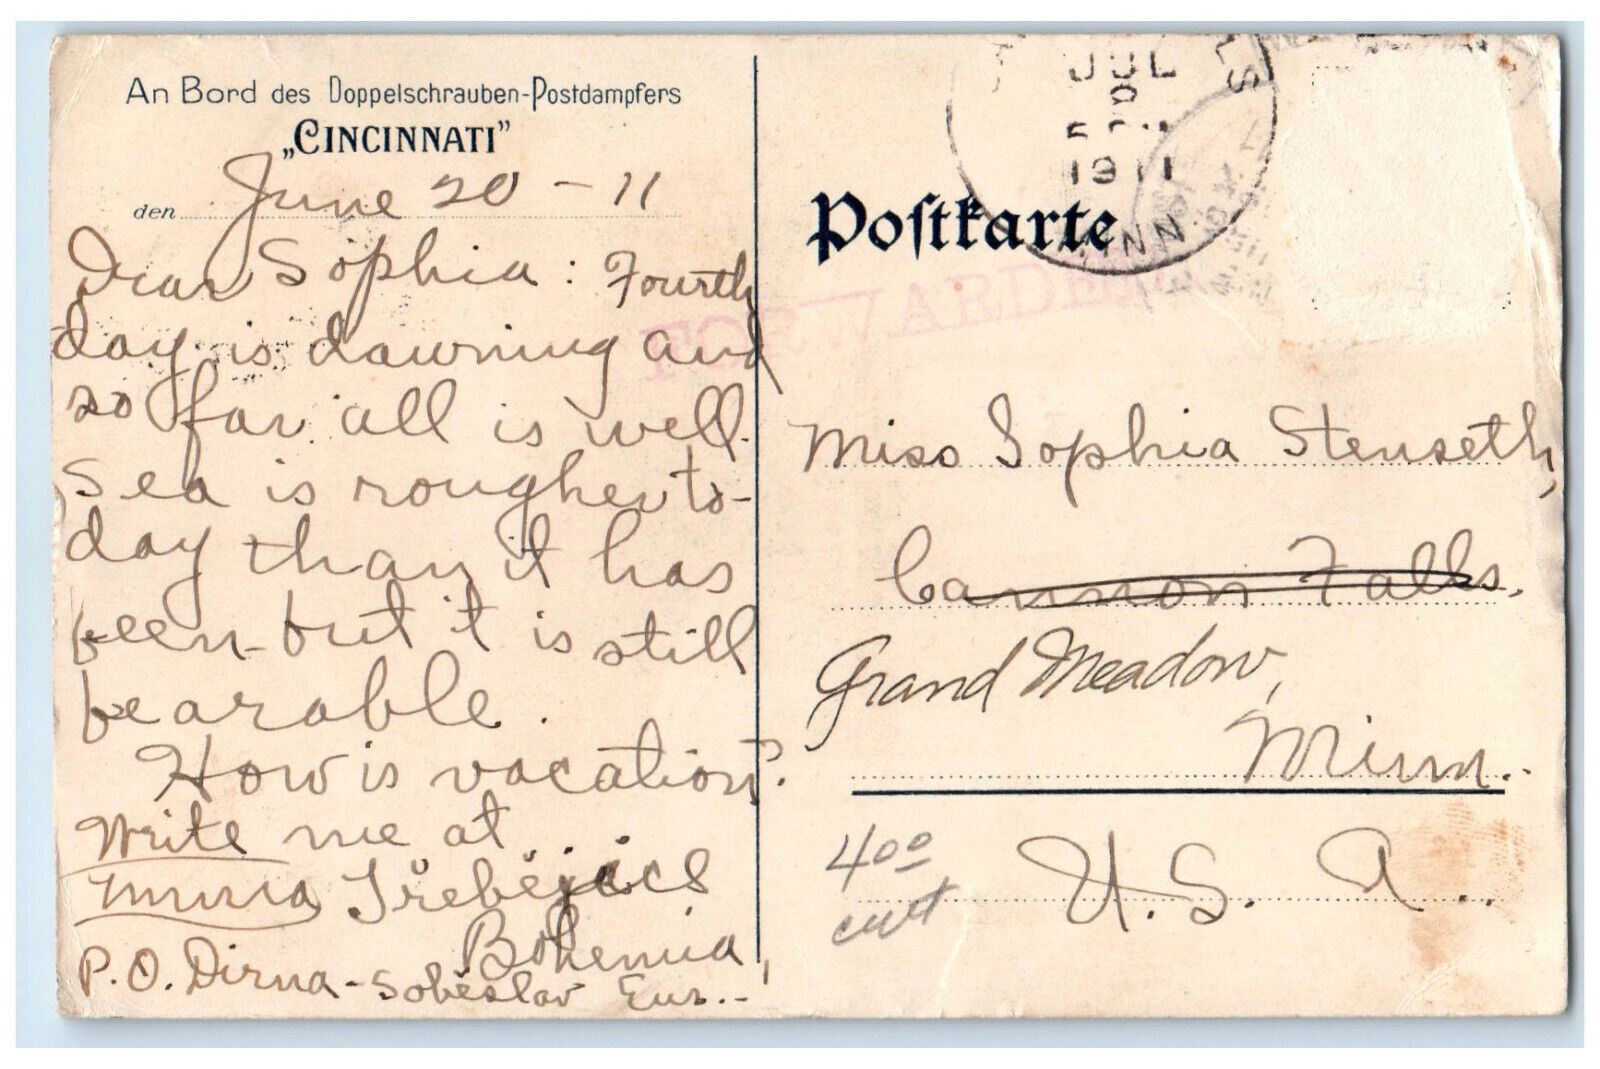 An Bord des Doppelschrauben-Postdampfers
„CINCINNATI”
den June 20 - 11
Dear Sophia: Fourth
day is dawning and
so far all is well.
Sea is rougher to-
day than it has
been - but it is still
bearable.
How is vacation?
Write me at
Třebějice
Bohemia,
P.O. Dirna - Soběslav Eur..
JUL
1911
MINN
Postkarte
FORWARDED
Miss Sophia Stenseth,
Cannon Falls.
Grand Meadow,
Minn..
4 00
U. S. A..